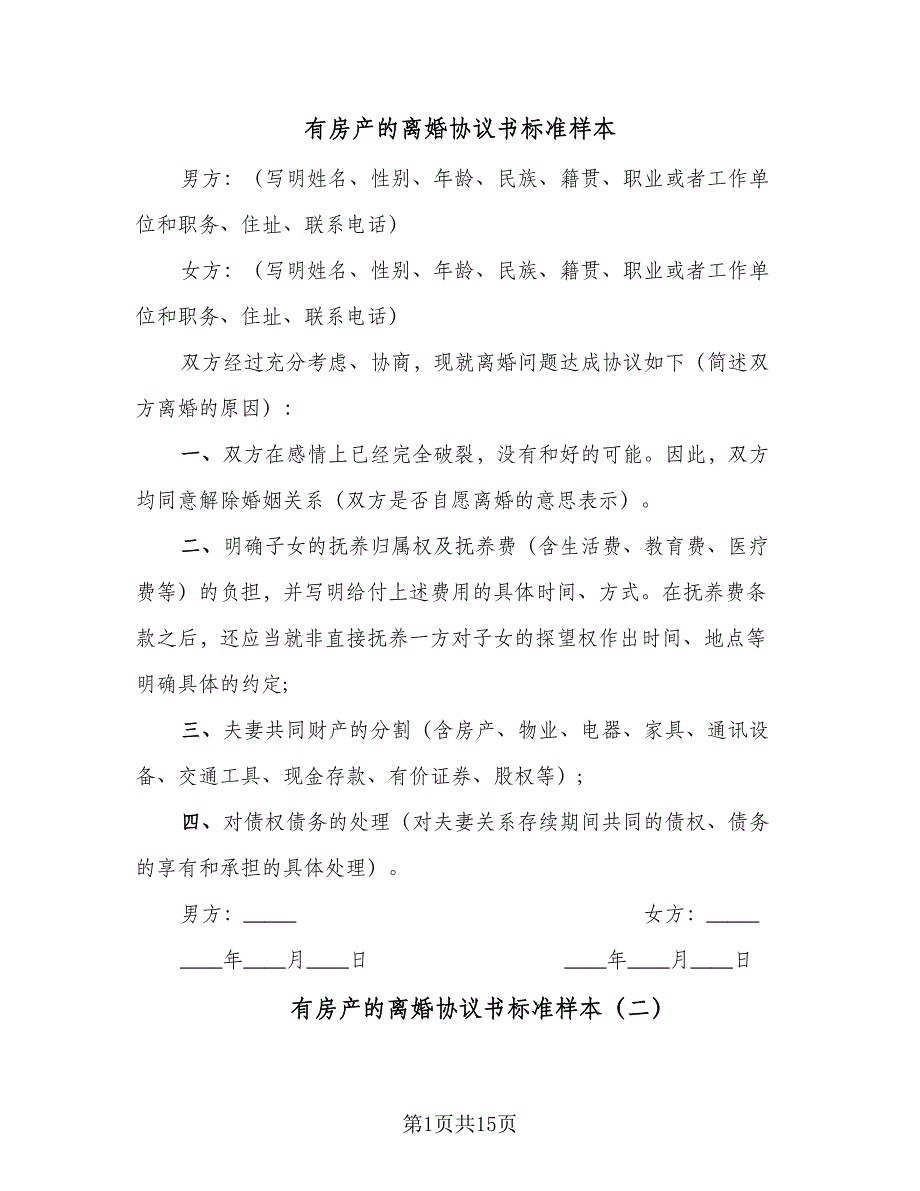 有房产的离婚协议书标准样本
男方：（写明姓名、性别、年龄、民族、籍贯、职业或者工作单
位和职务、住址、联系电话）
女方：（写明姓名、性别、年龄、民族、籍贯、职业或者工作单
位和职务、住址、联系电话）
双方经过充分考虑、协商，现就离婚问题达成协议如下（简述双
方离婚的原因）：
一、双方在感情上已经完全破裂，没有和好的可能。因此，双方
均同意解除婚姻关系（双方是否自愿离婚的意思表示）。
二、明确子女的抚养归属权及抚养费（含生活费、教育费、医疗
费等）的负担，并写明给付上述费用的具体时间、方式。在抚养费条
款之后，还应当就非直接抚养一方对子女的探望权作出时间、地点等
明确具体的约定;
三、夫妻共同财产的分割（含房产、物业、电器、家具、通讯设
备、交通工具、现金存款、有价证券、股权等）;
四、对债权债务的处理（对夫妻关系存续期间共同的债权、债务
的享有和承担的具体处理）。
男方：_____ 女方：_____
____年____月____日 ____年____月____日
有房产的离婚协议书标准样本（二）
第1页共15页